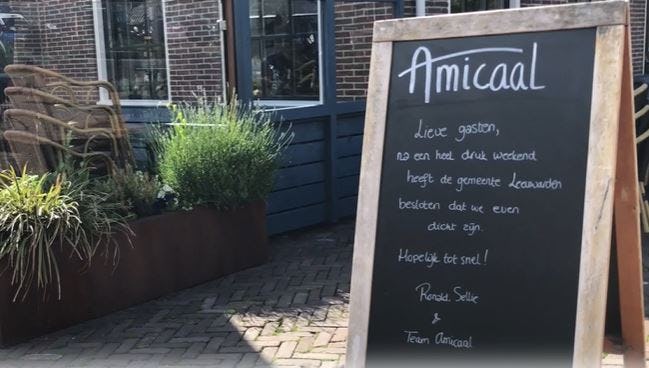 Amicaal
Lieve gasten,
na een heel druk weekend
heeft de gemeente Leeuwarden
besloten dat we even
dicht zijn.
Hopelijk tot snel!
Ronald, Sellie
&
Team Amicaal